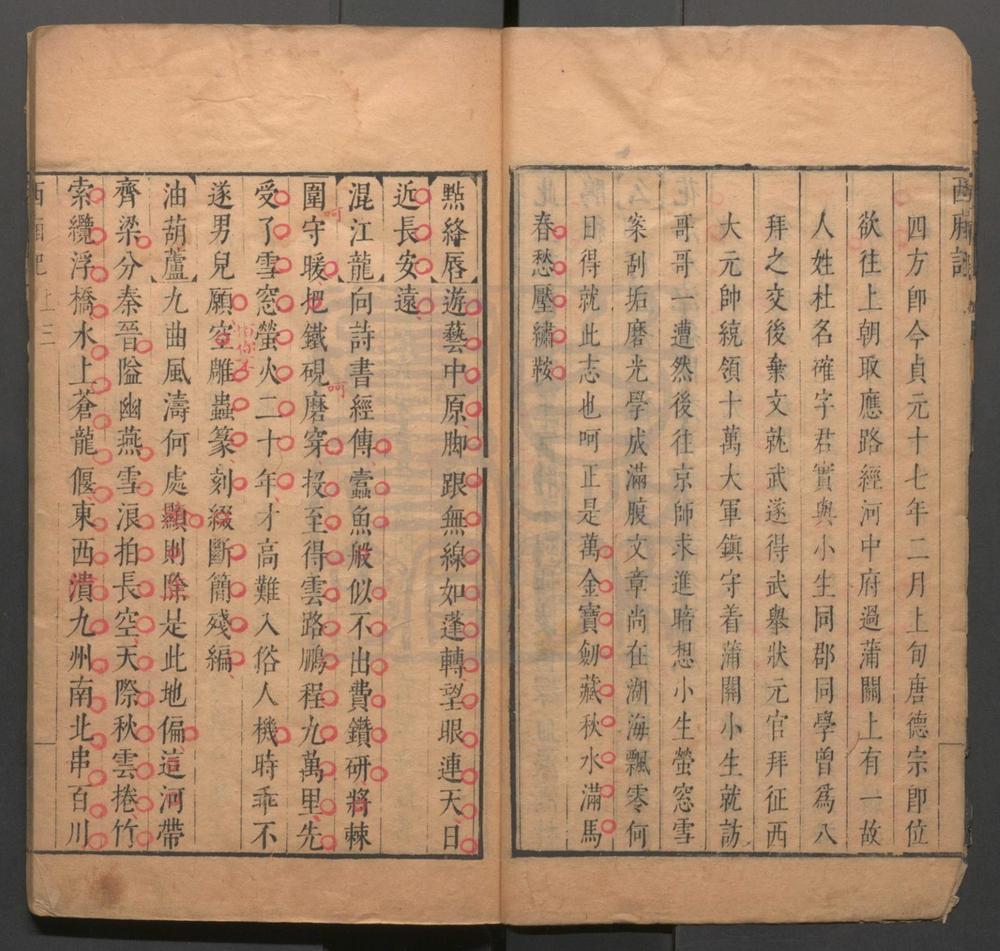 西廂記
四方即今貞元十七年二月上旬唐德宗即位
欲往上朝取應路經河中府過蒲關上有一故
人姓杜名確字君實與小生同郡同學曾爲八
拜之交後棄文就武遂得武舉狀元官拜征西
大元帥統領十萬大軍鎮守着蒲關小生就訪
哥哥一遭然後往京師求進暗想小生螢窓雪
案刮垢磨光學成滿腹文章尚在湖海飄零何
日得就此志也呵正是萬金寶劒藏秋水滿馬
春愁壓繡鞍
點絳唇遊藝中原脚跟無線如蓬轉望眼連天日
近長安遠
混江龍向詩書經傳蠹魚般似不出費鑽研將棘
圍守暖把鐵硯磨穿投至得雲路鵬程九萬里先
受了雪窓螢火二十年才高難入俗人機時乖不
遂男兒願空雕蟲篆刻綴斷簡殘編
油葫蘆九曲風濤何處顯則除是此地偏這河帶
齊梁分秦晉隘幽燕雪浪拍長空天際秋雲捲竹
索纜浮橋水上蒼龍偃東西潰九州南北串百川
西廂記 上 三
呵
呵